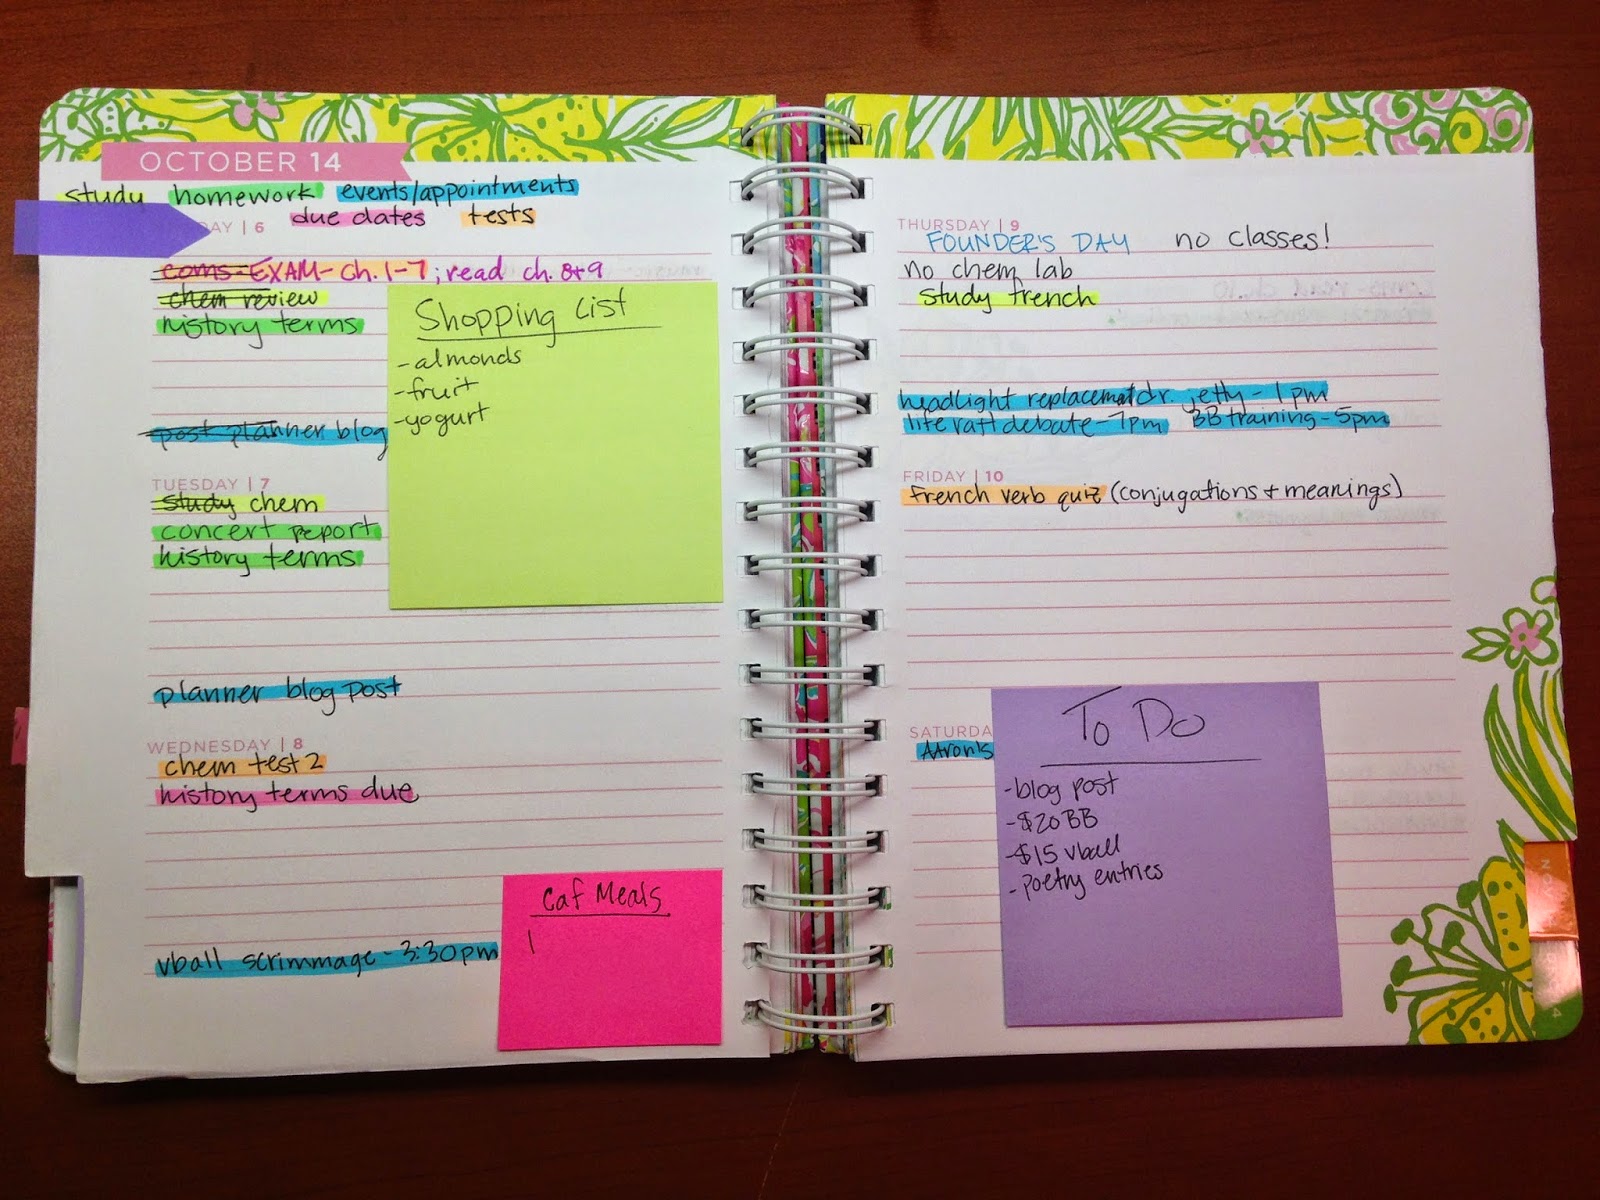 OCTOBER 14
study homework events/appointments
due dates tests
AY | 6
coms - EXAM - Ch. 1-7; read ch. 8+9
chem review
history terms
Shopping List
-almonds
-fruit
-yogurt
post planner blog
TUESDAY | 7
study chem
concert report
history terms
planner blog post
WEDNESDAY | 8
chem test 2
history terms due
vball scrimmage - 3:30pm
Caf Meals
1
THURSDAY | 9
FOUNDER'S DAY no classes!
no chem lab
study french
headlight replacement/dr. jetty - 1pm
debate - 7pm BB training - 5pm
FRIDAY | 10
french verb quiz (conjugations + meanings)
SATURDA
Aaron's
To Do
-blog post
-$20 BB
-$15 vball
-poetry entries